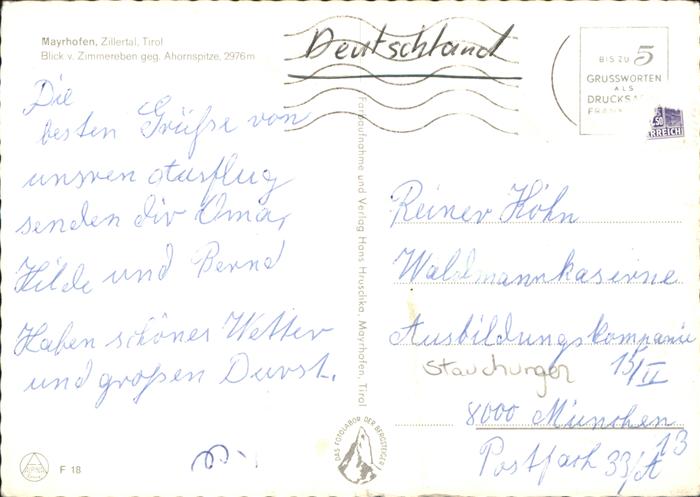 Mayrhofen, Zillertal, Tirol
Blick v. Zimmereben geg. Ahornspitze, 2976m
Deutschland
BIS ZU 5
GRUSSWORTEN
ALS
DRUCKSA
FRAN
50
RREICH
Die
besten Grüße von
unsren Ausflug
senden dir Oma,
Hilde und Bernd
Haben schönes Wetter
und großen Durst.
Farbaufnahme und Verlag Hans Hruschka, Mayrhofen, Tirol
Reiner Höhn
Waldmannkaserne
Ausbildungskompanie
15/II
Stauchungen
8000 München
13
Postfach 33/A
DAS FOTOLABOR DER BERGSTEIGER
F 18